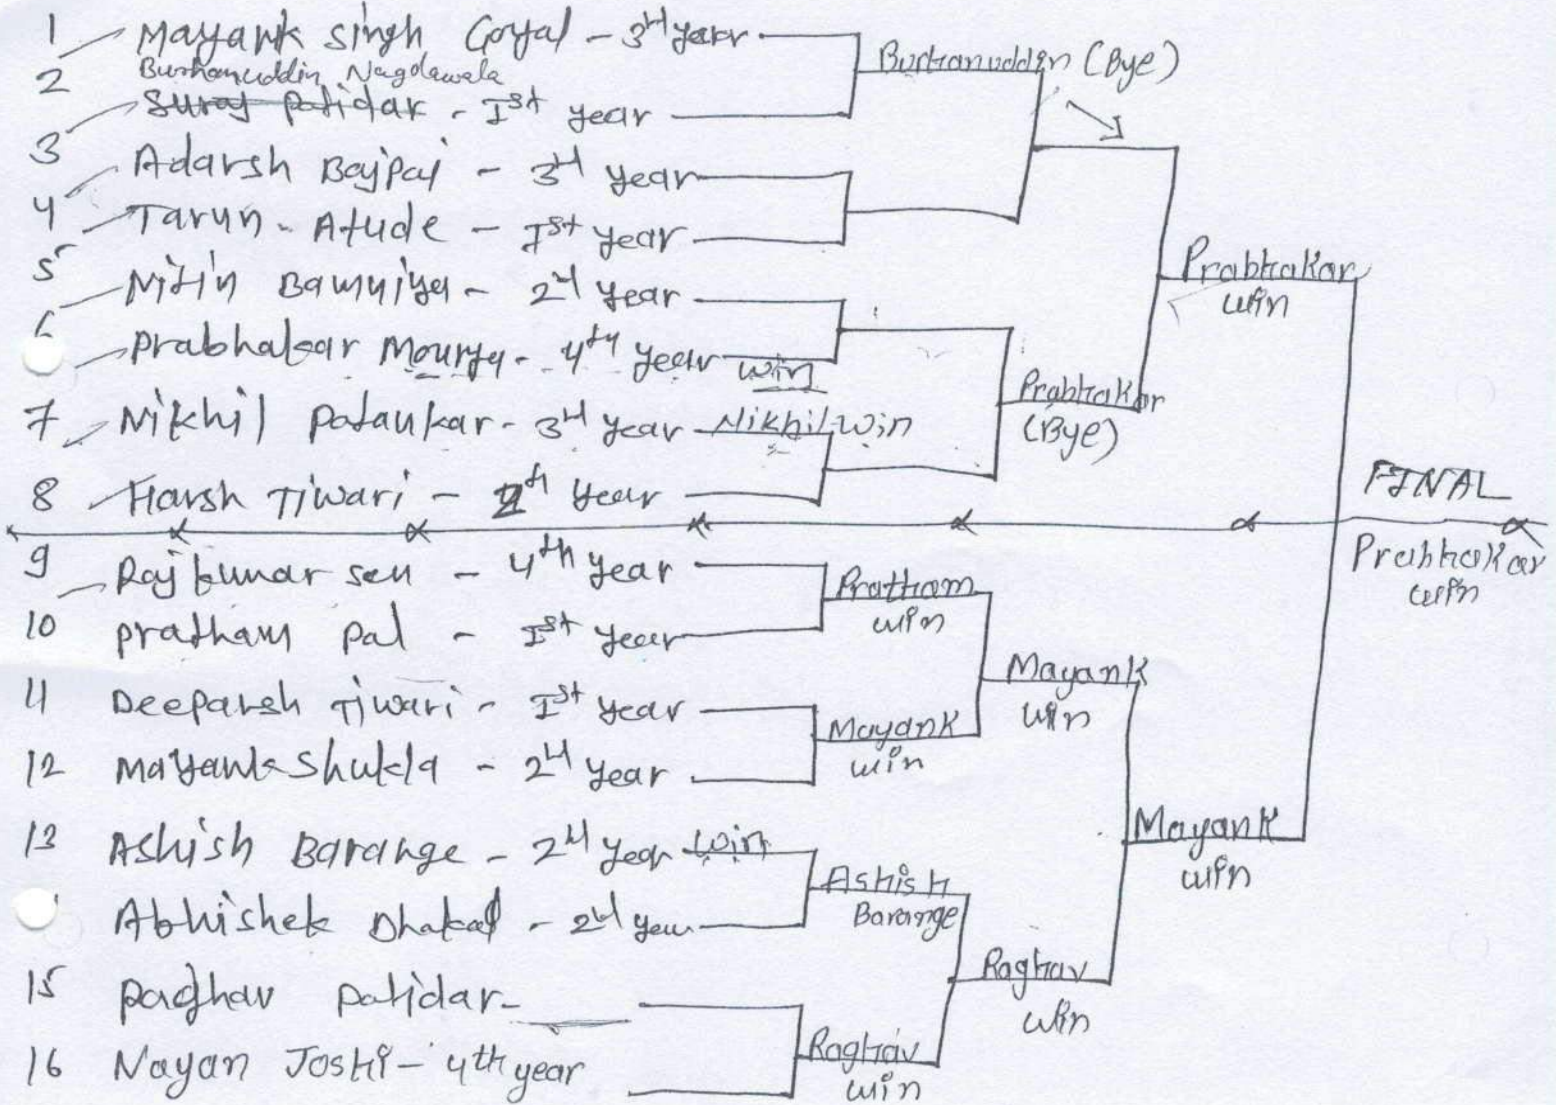 1 Mayank Singh Goyal - 3rd year
2 Burhanuddin Nagdawala
Suraj Patidar - Ist year
3 Adarsh Bajpai - 3rd year
4 Tarun - Atude - Ist year
5 Nitin Bamniya - 2nd year
6 Prabhakar Mourya - 4th year win
7 Nikhil Patankar - 3rd year Nikhil Win
8 Harsh Tiwari - 2th year
9 Rajkumar sen - 4th year
10 pratham pal - Ist year
11 Deeparsh Tiwari - Ist year
12 Mayank Shukla - 2nd year
13 Ashish Barange - 2nd year win
Abhishek Dhakad - 2nd year
15 Raghav Patidar -
16 Nayan Joshi - 4th year
Burhanuddin (Bye)
Prabhakar
(Bye)
Prabhakar
win
Pratham
win
Mayank
win
Mayank
win
Ashish
Barange
Raghav
win
Raghav
win
Mayank
win
FINAL
Prabhakar
win